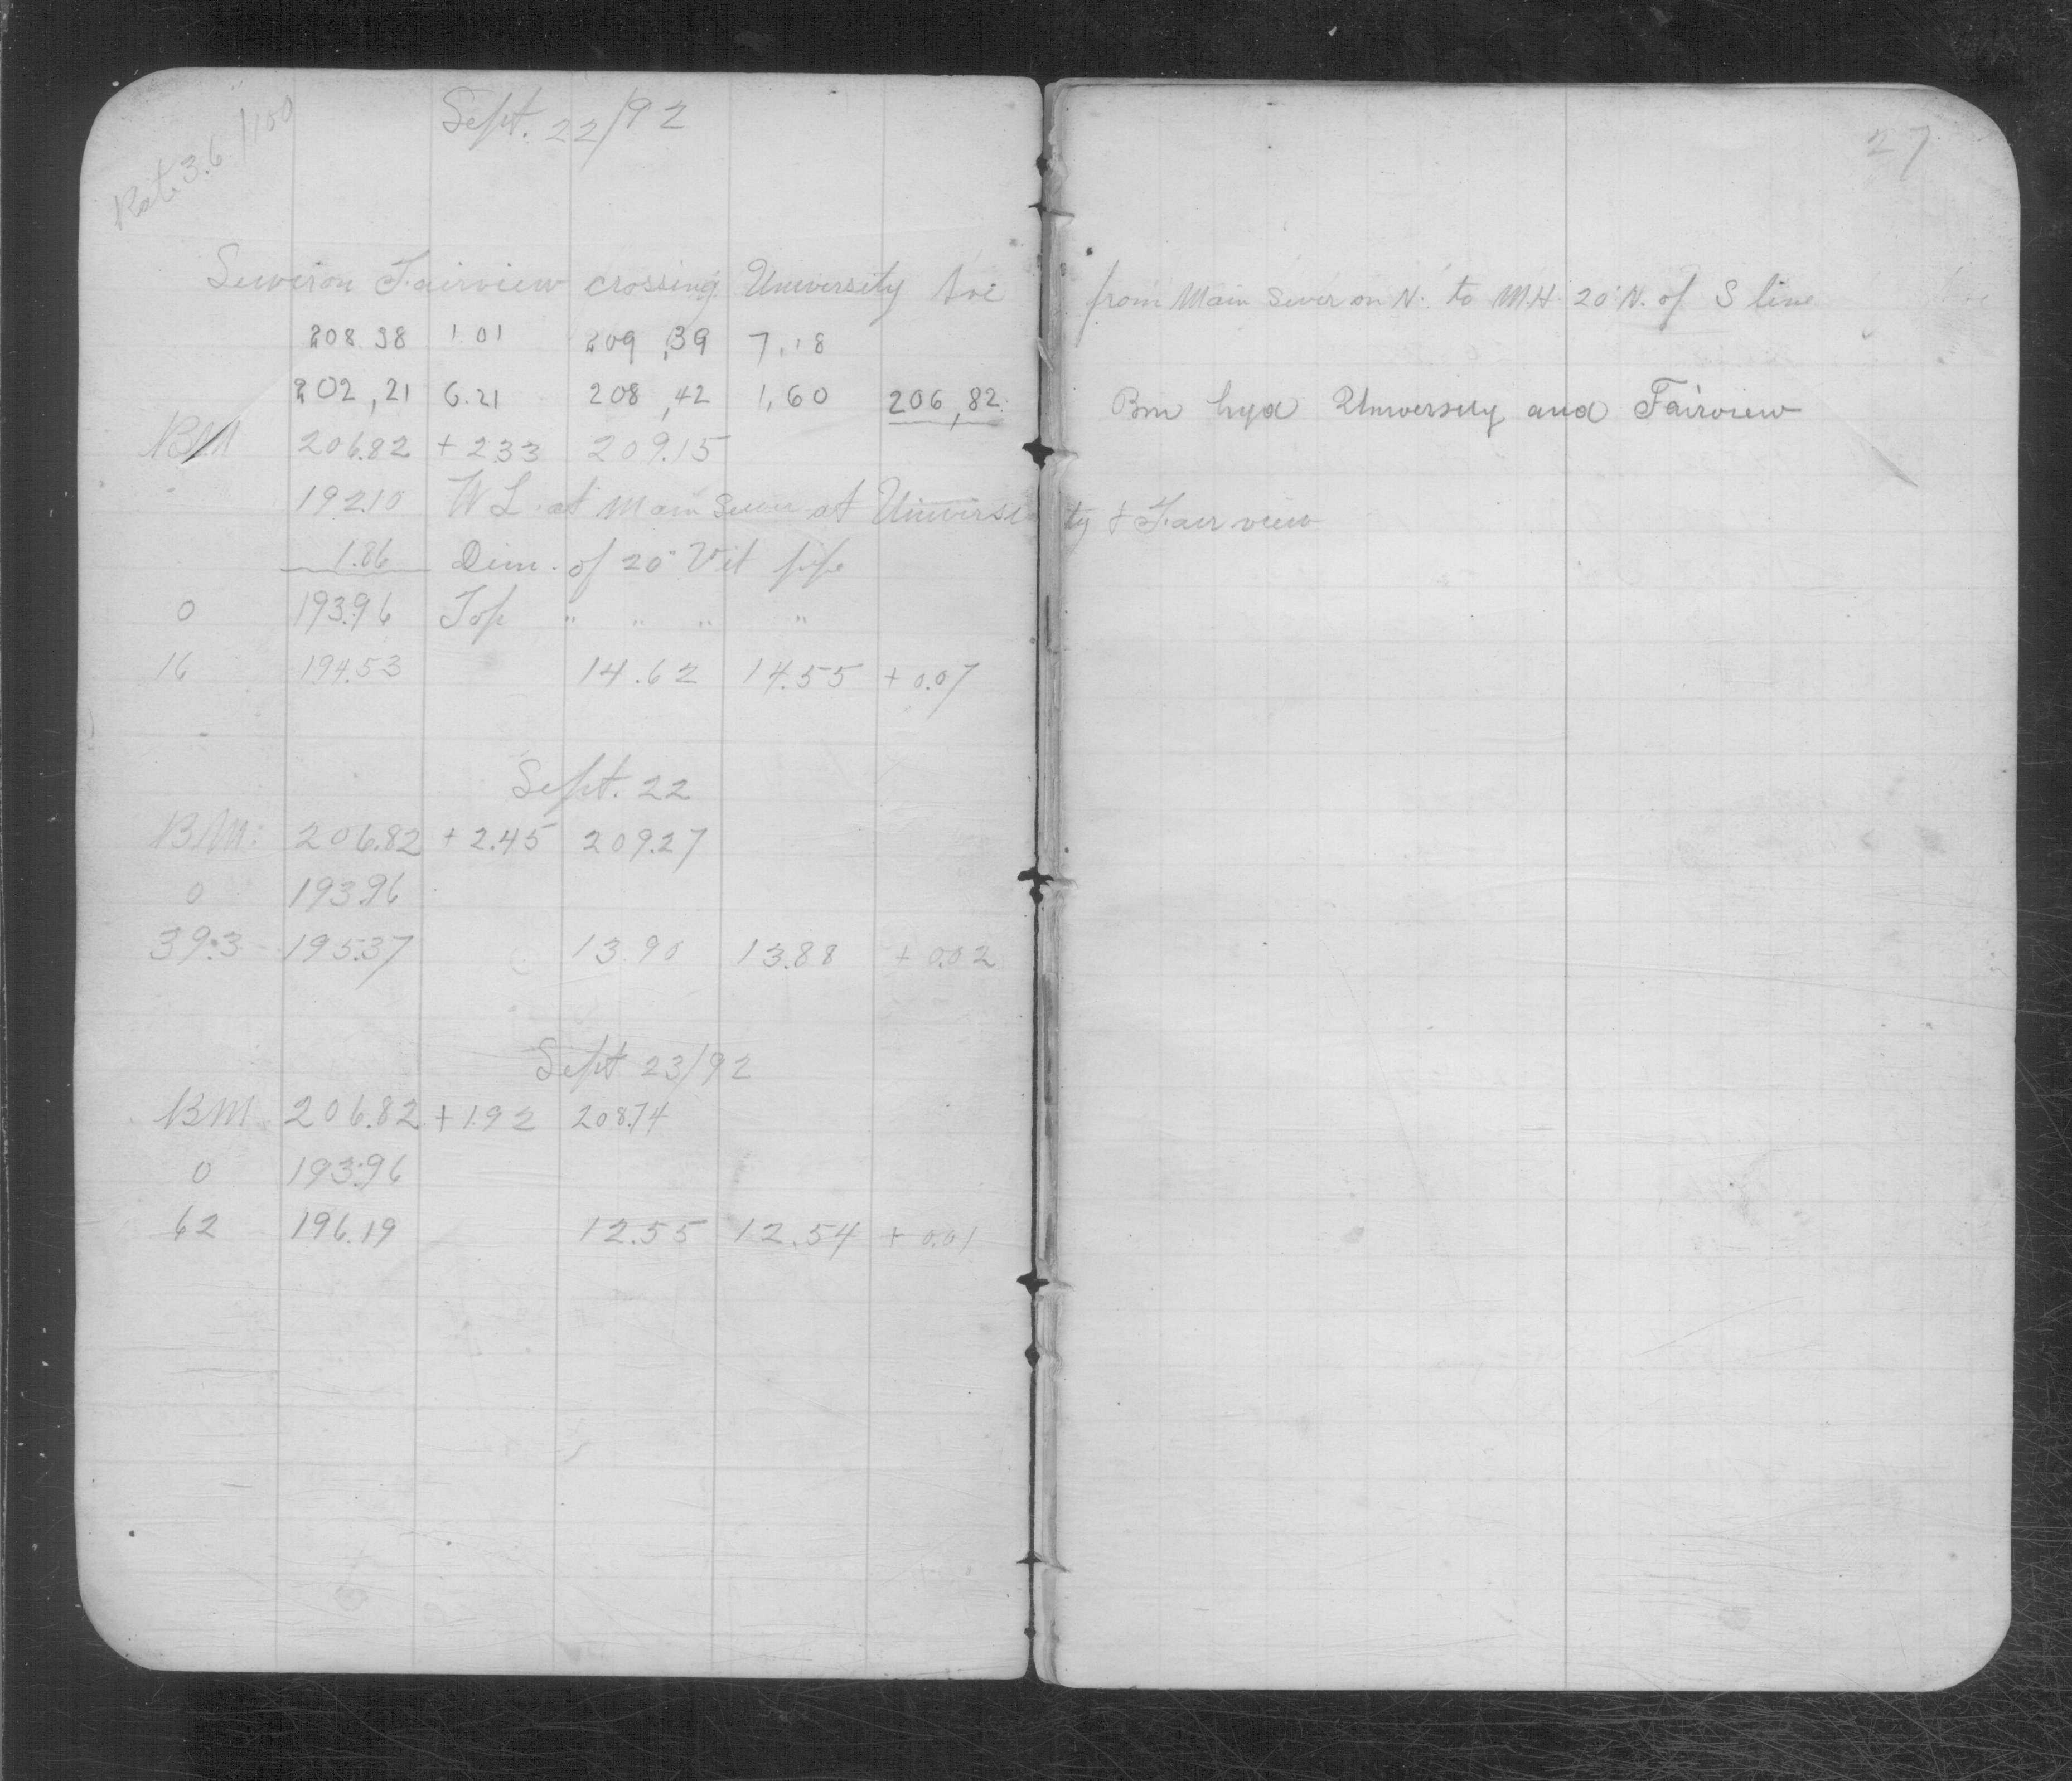 Sept. 22/92
27
Rate 3.6/100
Sewer on Fairview crossing University Ave from Main Sewer on N. to M.H. 20' N. of S line
208.38 1.01 209,39 7.18
202,21 6.21 208,42 1,60 206,82 Bm hyd University and Fairview
BM 206.82 + 233 209.15
192.10 W L. at Main Sewer at University & Fairview
1.86 Dim. of 20" Vit pipe
0 193.96 Top " " " "
16 194.53 14.62 14.55 + 0.07
Sept. 22
BM. 206.82 + 2.45 209.27
0 193.96
39.3 195.37 13.90 13.88 + 0.02
Sept 23/92
BM 206.82 + 1.92 208.74
0 193.96
62 196.19 12.55 12.54 + 0.01